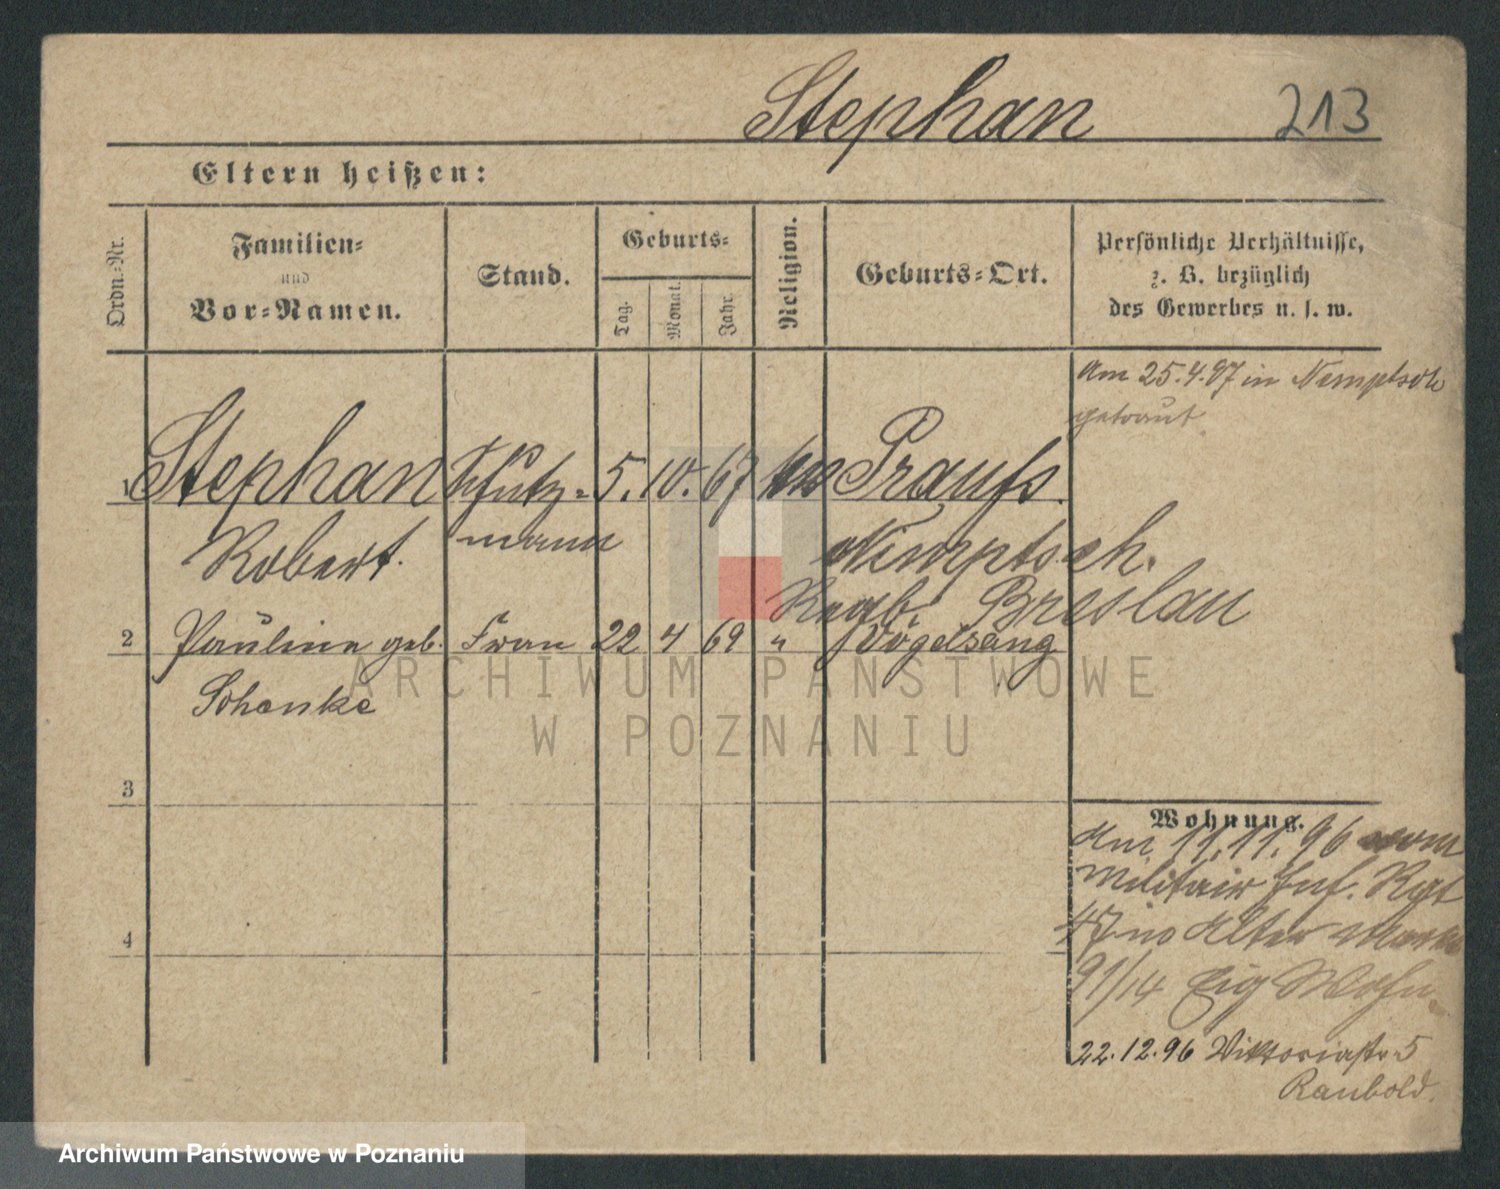 Stephan 213
Eltern heißen:
Ordn.-Nr. Familien- und Vor-Namen. Stand. Geburts- Tag. Monat. Jahr. Religion. Geburts-Ort. Persönliche Verhältnisse, z. B. bezüglich des Gewerbes u. s. w.
Am 25.4.97 in Nimptsch
getraut
1 Stephan Schutz- 5. 10. 67 Prauss
Robert. mann Nimptsch.
Regb. Breslau
2 Pauline geb. Frau 22 4 69 " Vogelsang
Schenke
3
Wohnung.
Am 11.11.96 vom
Militair Inf. Rgt
47 Alter Markt
4
91/14 Eig Wohn.
22.12.96 Viktoriastr 5
Raubold.
ARCHIWUM PAŃSTWOWE
W POZNANIU
Archiwum Państwowe w Poznaniu